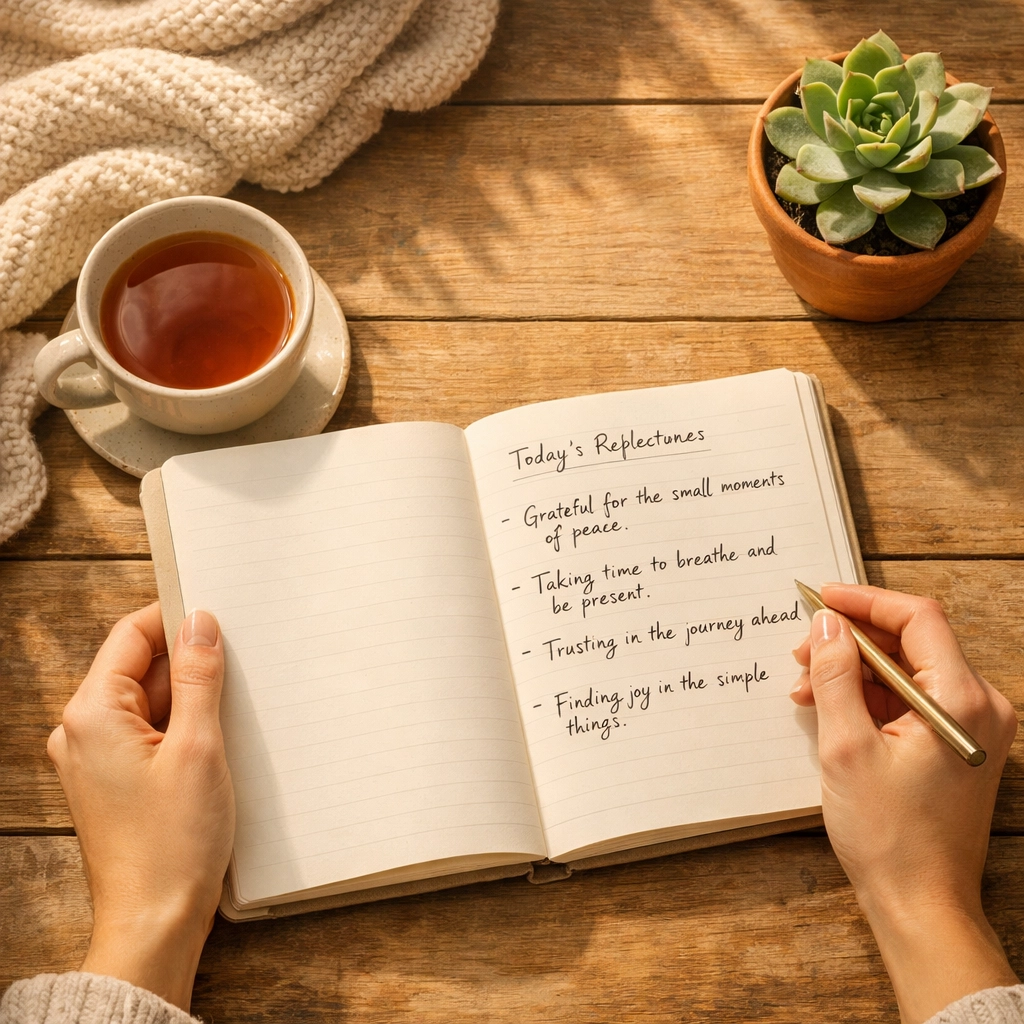 Today's Replectunes
- Grateful for the small moments
of peace.
- Taking time to breathe and
be present.
- Trusting in the journey ahead
- Finding joy in the simple
things.